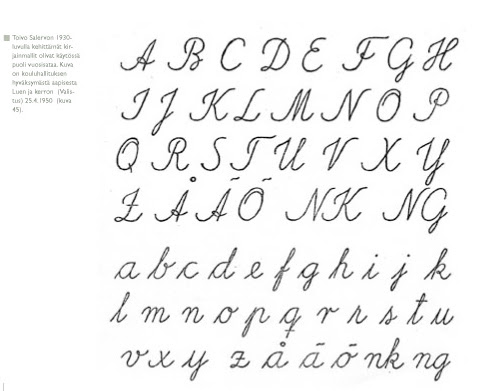 Toivo Salervon 1930-
luvulla kehittämät kir-
jainmallit olivat käytössä
puoli vuosisataa. Kuva
on kouluhallituksen
hyväksymästä aapisesta
Luen ja kerron (Valis-
tus) 25.4.1950 (kuva
45).
A B C D E F G H
I J K L M N O P
Q R S T U V X Y
Z Å Ä Ö NK NG
a b c d e f g h i j k
l m n o p q r r s t u
v x y z å ä ö nk ng